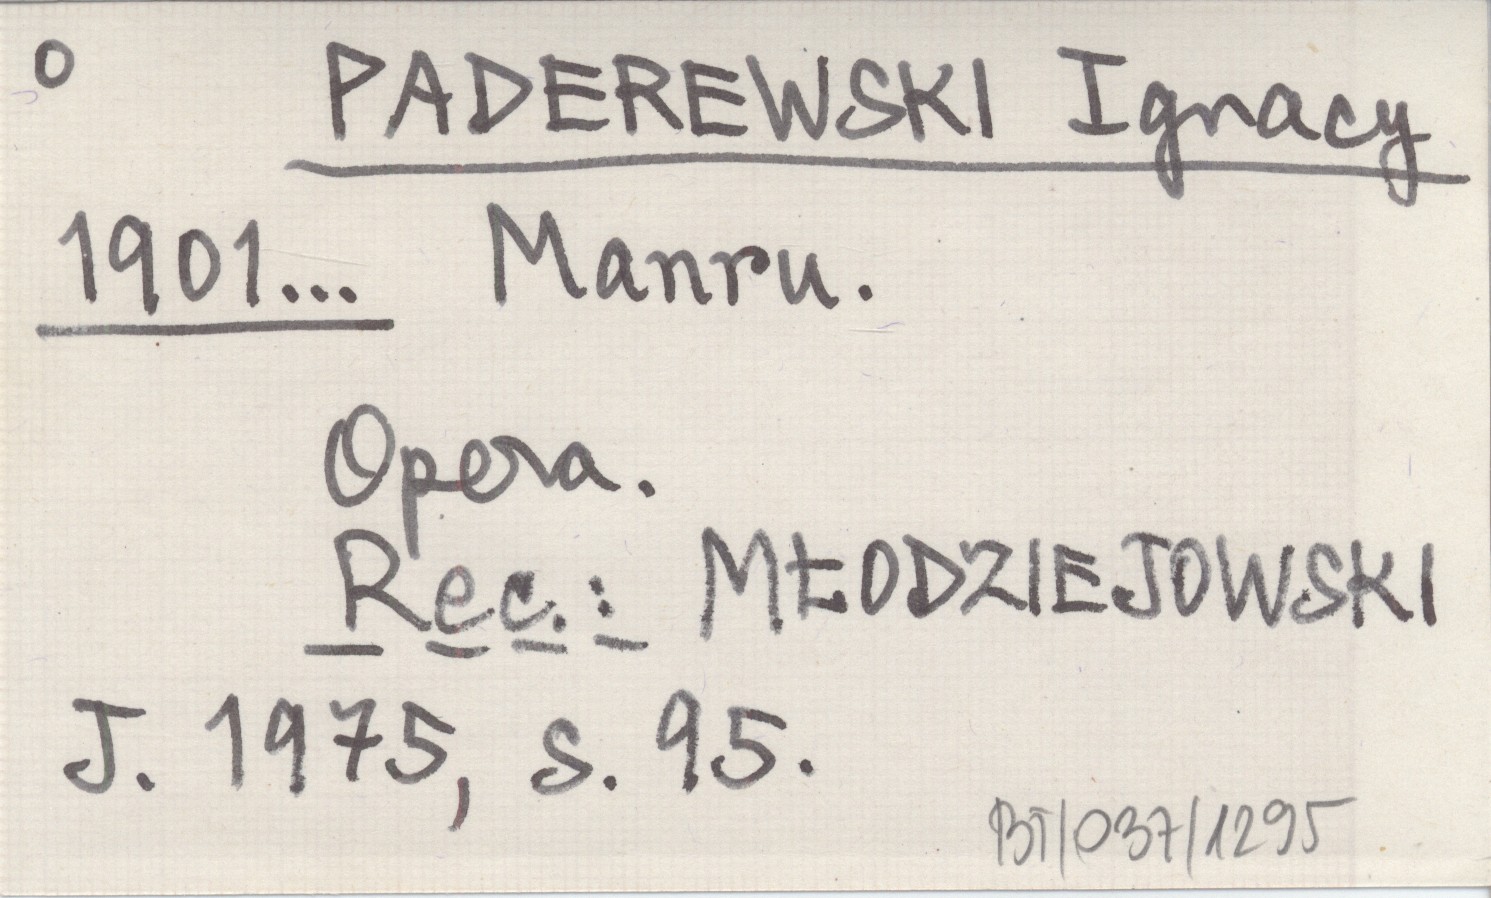 o PADEREWSKI Ignacy
1901... Manru.
Opera.
Rec.: MŁODZIEJOWSKI
J. 1975, s. 95.
BT/037/1295